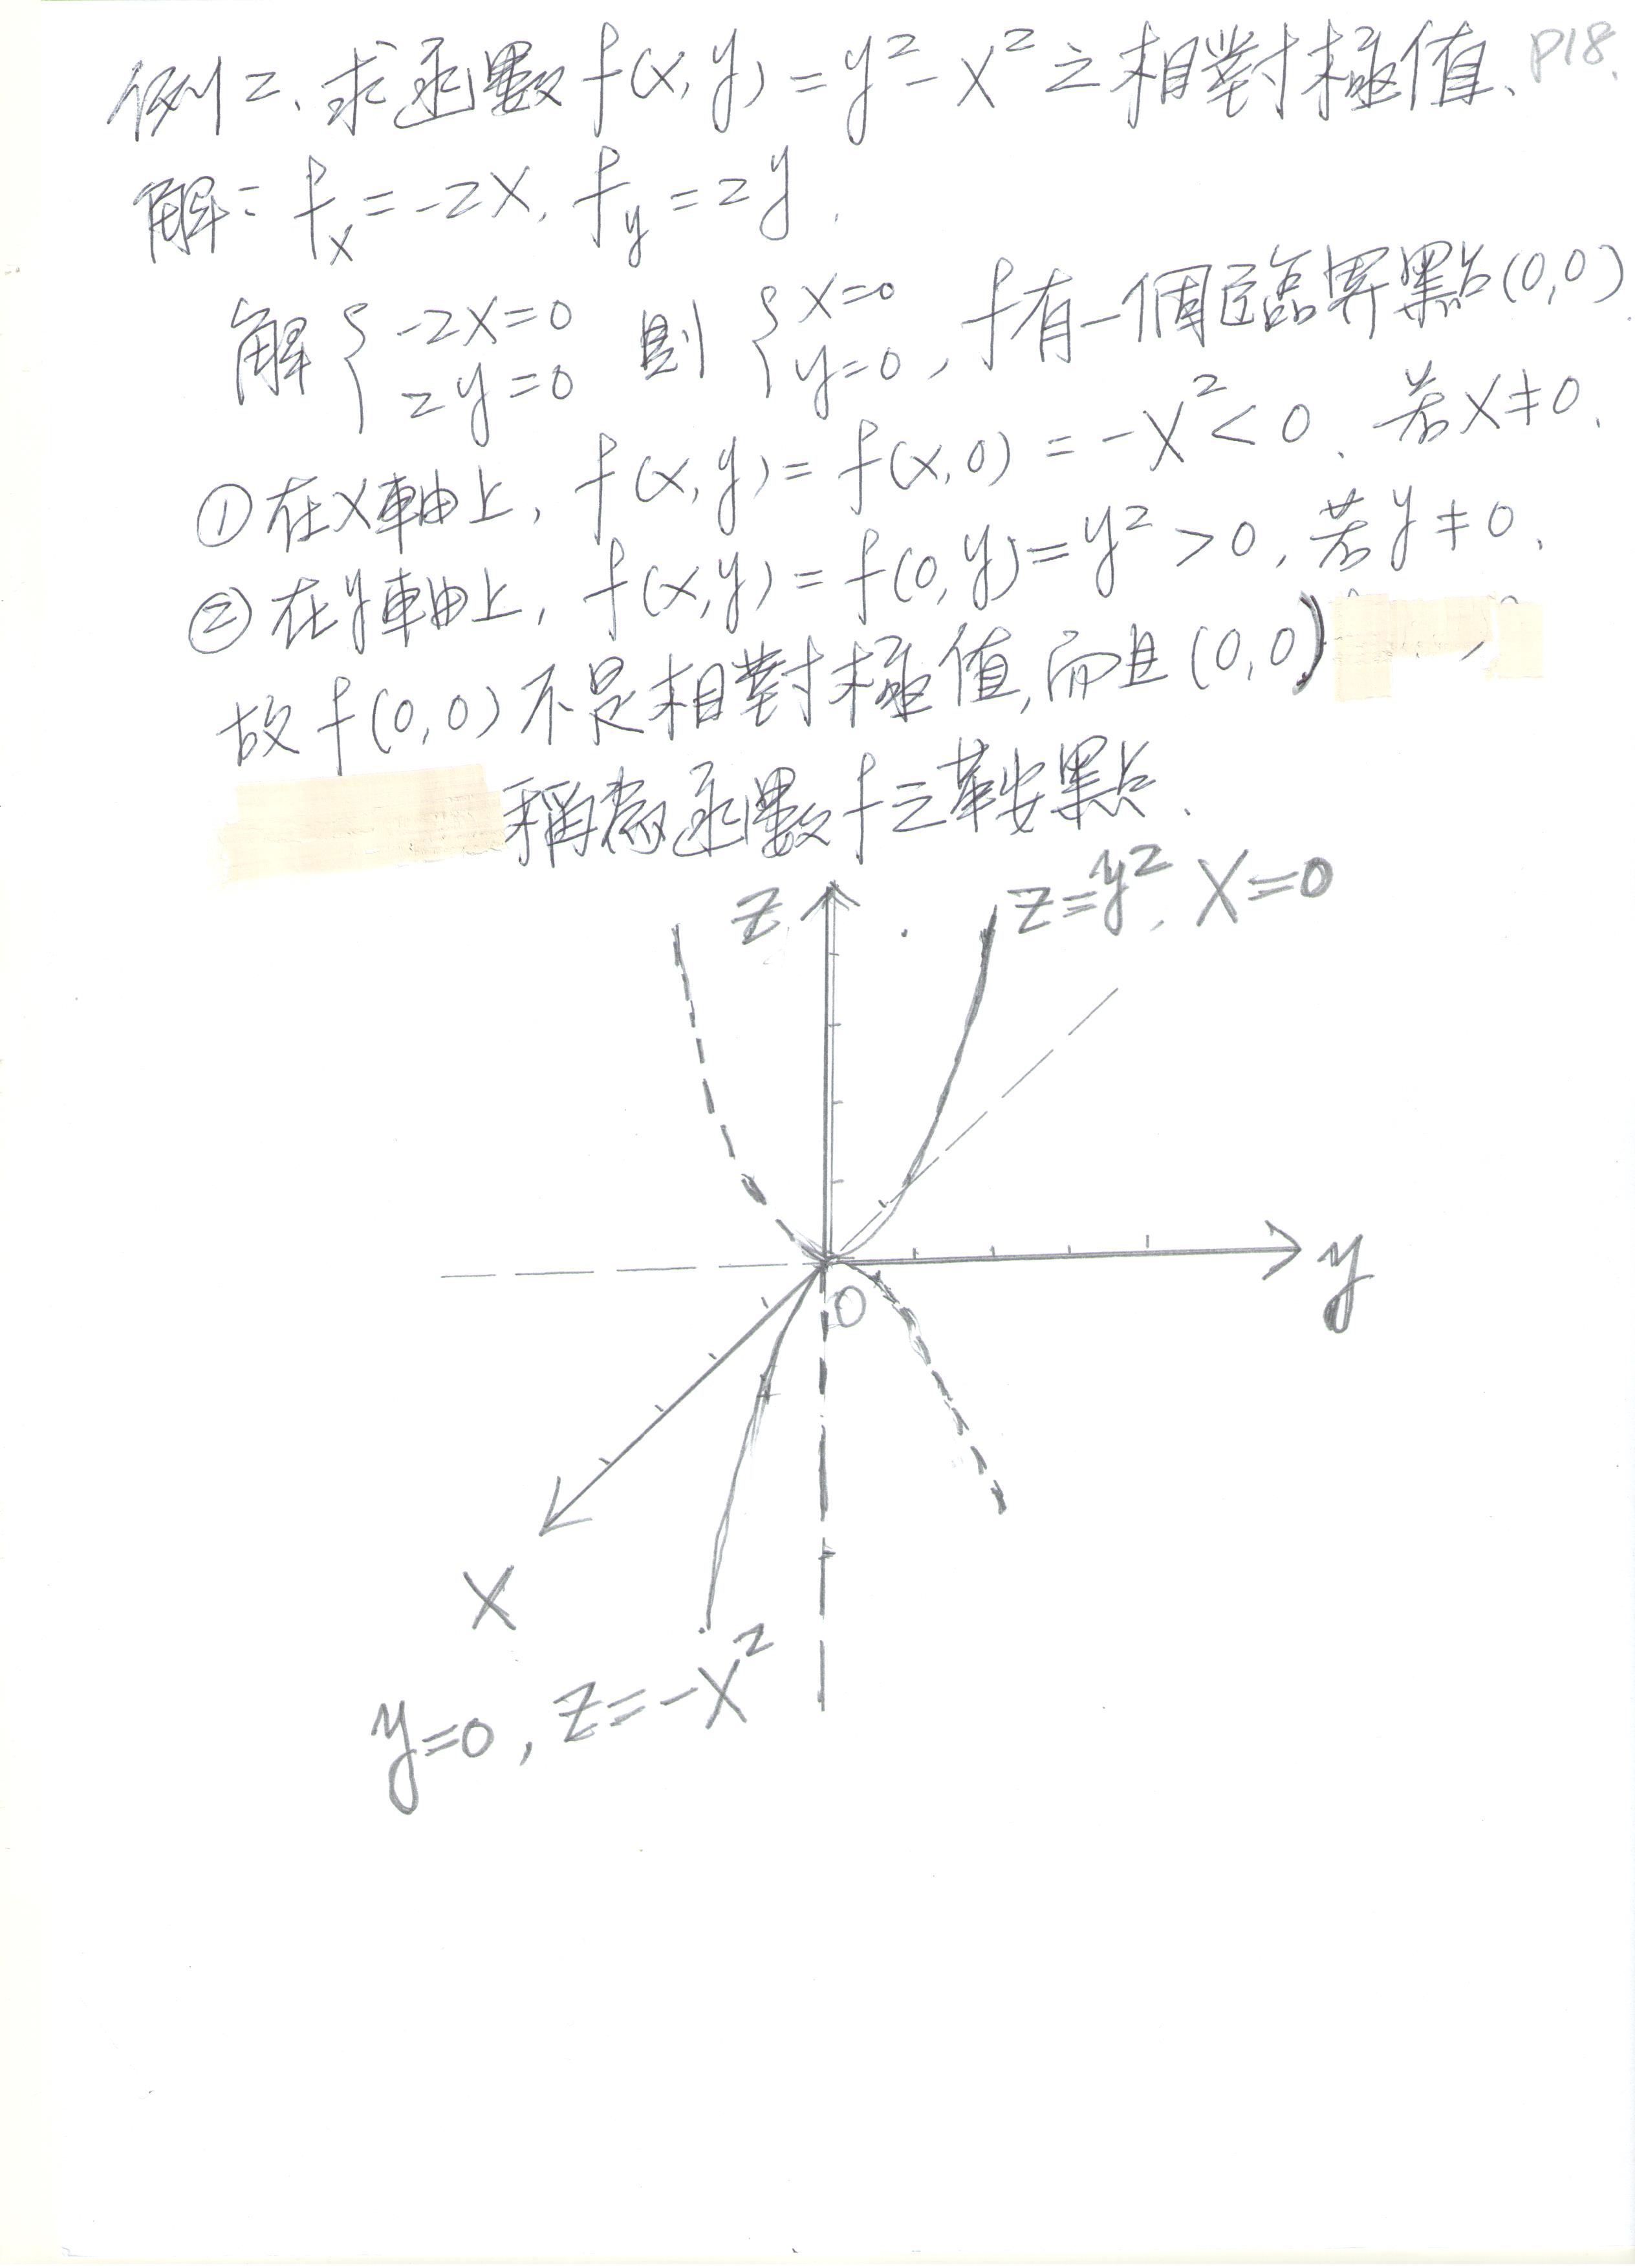 例2. 求函數 f(x,y) = y² - x² 之相對極值. P18.
解: f_x = -2x, f_y = 2y.
解 { -2x=0 則 { x=0 , f有一個臨界點(0,0)
2y=0 y=0
① 在x軸上, f(x,y) = f(x,0) = -x² < 0. 若 x≠0.
② 在y軸上, f(x,y) = f(0,y) = y² > 0, 若 y≠0.
故 f(0,0) 不是相對極值, 而且 (0,0)
稱為函數 f 之鞍點.
z z=y², x=0
y
0
x
y=0, z=-x²